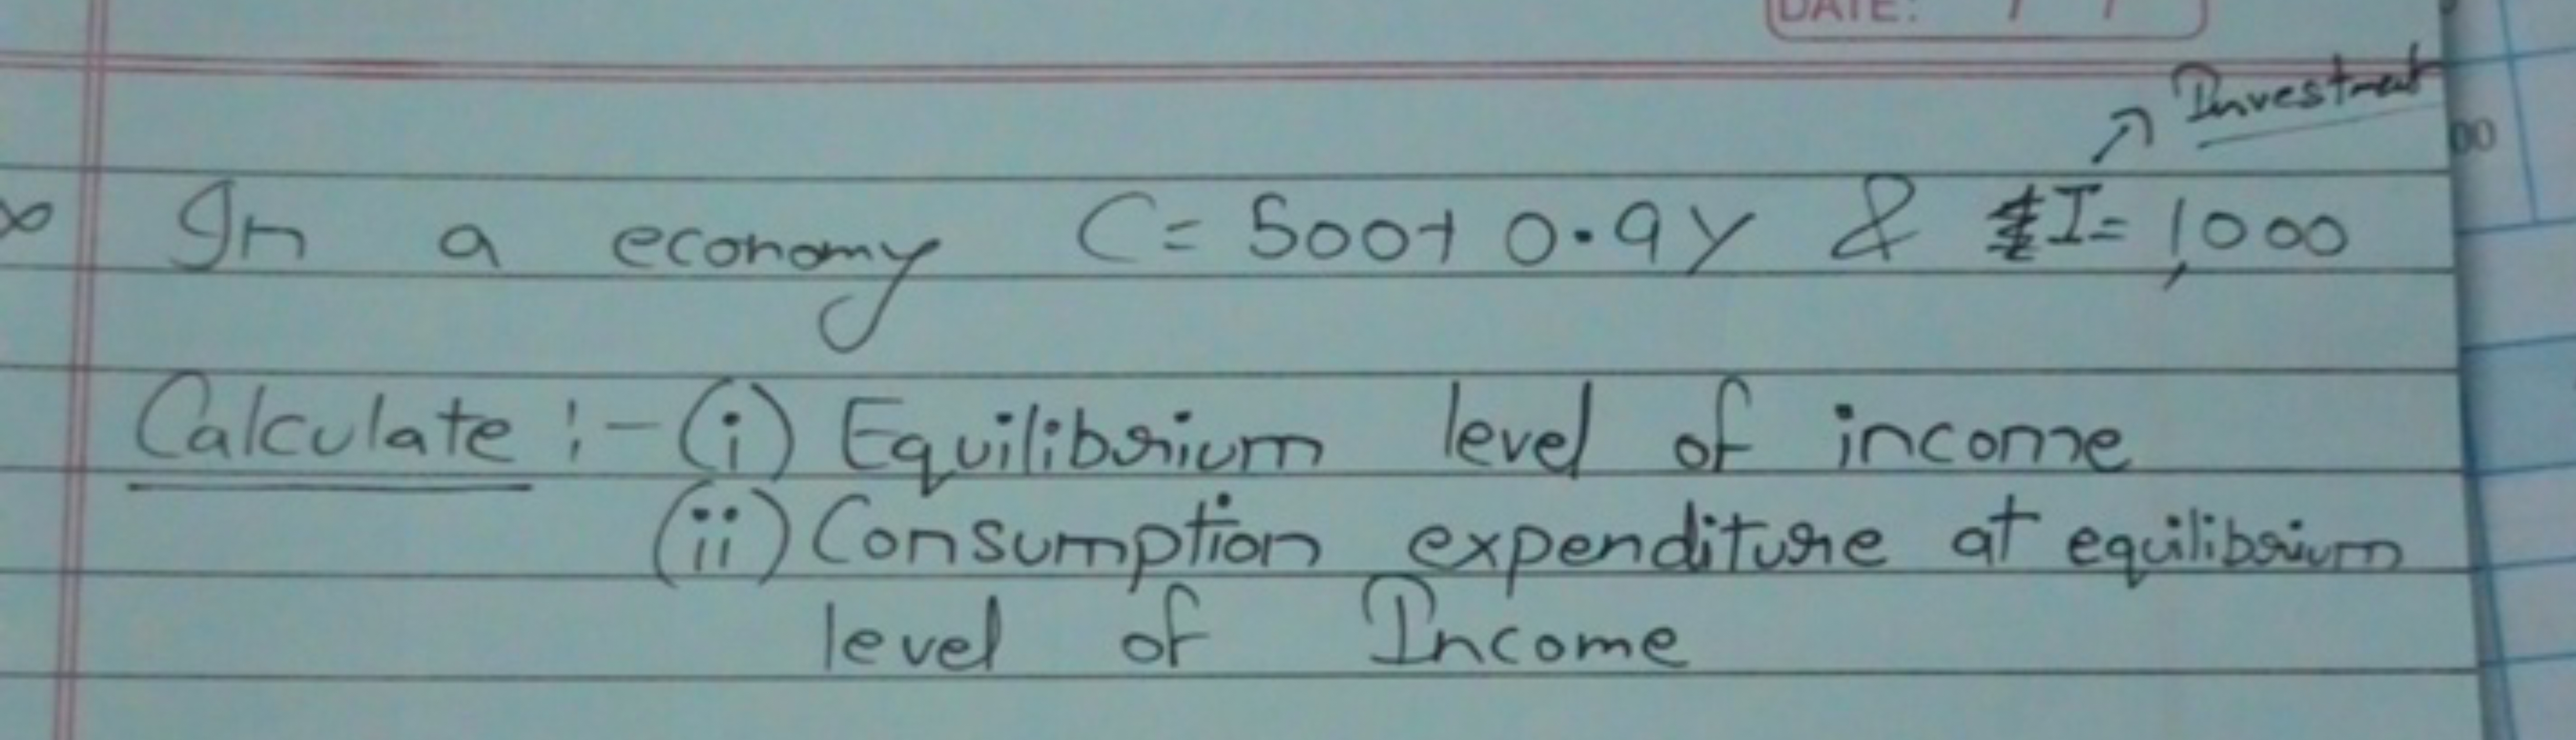 DATE: / /
Investment
00
In a economy C = 500+ 0.9Y & I = 1,000
Calculate :- (i) Equilibrium level of income
(ii) Consumption expenditure at equilibrium
level of Income